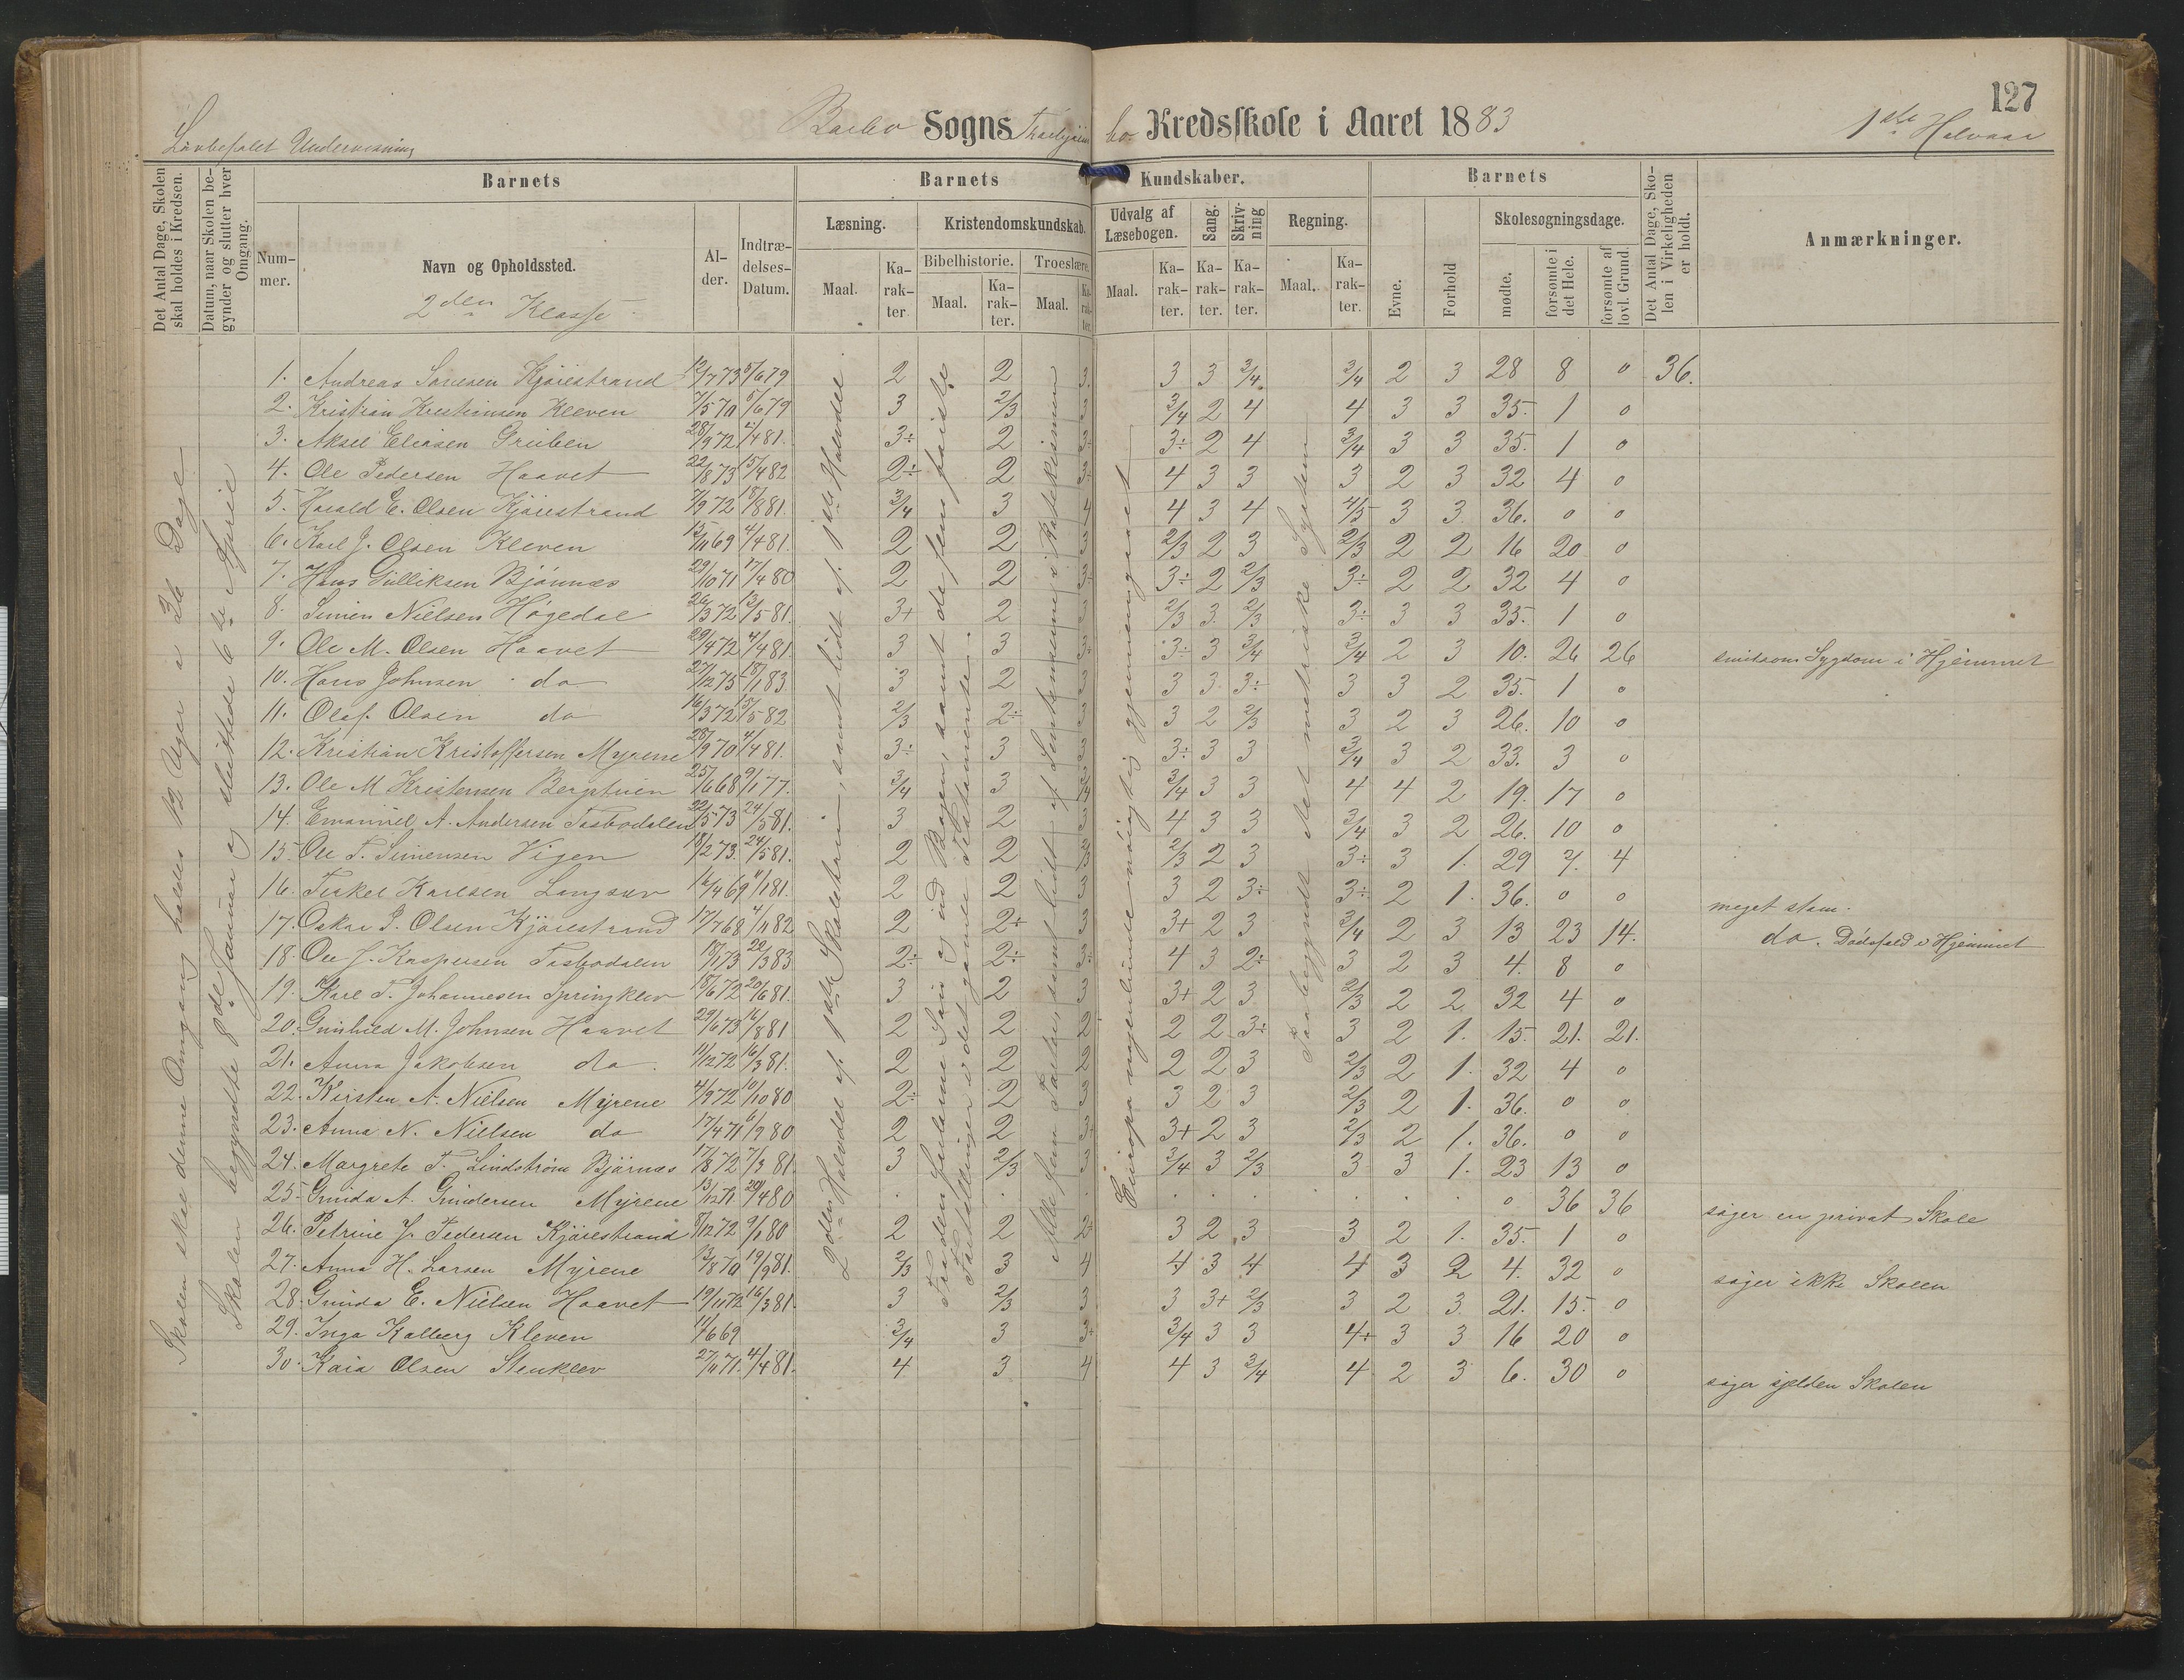 127
Barbo Sogns Kredsskole i Aaret 1883
1ste Halvaar
Lovbefalet Undervisning
Det Antal Dage, Skolen skal holdes i Kredsen.
Datum, naar Skolen begynder og slutter hver Omgang.
Barnets
Nummer.
Navn og Opholdssted.
2den Klasse
Alder.
Indtrædelses-Datum.
Barnets Kundskaber.
Læsning.
Maal.
Karakter
Kristendomskundskab.
Bibelhistorie.
Maal.
Karakter.
Troeslære.
Maal.
Karakter.
Udvalg af Læsebogen.
Maal.
Karakter.
Sang.
Karakter.
Skrivning
Karakter.
Regning.
Maal.
Karakter.
Barnets
Evne.
Forhold
Skolesøgningsdage.
mødte.
forsømte i det Hele.
forsømte af lovl. Grund
Det Antal Dage, Skolen i Virkeligheden er holdt.
Anmærkninger.
Skolen skal denne Omgang holdes 12 Uger a 36 Dage
Skolen begyndte 8de Januar og sluttede 6te April
2den Halvdel af 1ste Skoletrin, samt lidt af 1ste Halvdel
Europa nogenlunde nøiagtig gjennemgaaet
Paabegyndt det metriske System
1. Andreas Sørensen Kjørrestrand 12/7 73 5/6 79 2 2 3 3 3 3/4 3/4 2 3 28 8 0 36.
2. Kristian Kristiansen Kleven 7/5 70 5/6 79 3 2/3 3 3/4 2 4 4 3 3 35. 1 0
3. Aksel Eliasen Gruben 28/9 72 4/4 81. 3÷ 2 3÷ 3÷ 2 4 3/4 3 3 35. 1 0
4. Ole Pedersen Haavet 22/8 73 15/4 82 2÷ 2 3÷ 4 3 3 3 2 3 32 4 0
5. Harald E. Olsen Kjørrestrand 7/9 72 18/8 81. 3/4 3 4 4 3 4 4/5 3 3 36. 0 0
6. Karl J. Olsen Kleven 15/11 69 4/4 81. 2 2 3 2/3 2 3 2/3 2 2 16 20 0
7. Hans Gulliksen Bjønnæs 29/10 71 17/4 80 2 2 3÷ 3÷ 2 2/3 3÷ 2 2 32 4 0
8. Simen Nielsen Høgedal 26/3 72 13/5 81. 3+ 2 3 2/3 3. 2/3 3÷ 3 3 35. 1 0
9. Ole M. Olsen Haavet 29/4 72 4/4 81. 3 3 3÷ 3÷ 3 3/4 3/4 2 3 10. 26 26 smitsom Sygdom i Hjemmet
10. Hans Johnsen do 27/12 75 18/1 83. 3 2 3 3 3 3÷ 3 3 2 35. 1 0
11. Olaf Olsen do 16/3 72 15/5 82 2/3 2÷ 3 3 2 2/3 3 2 3 26. 10 0
12. Kristian Kristoffersen Myrene 28/9 70 4/4 81. 3÷ 3 3 3÷ 3 3 3/4 3 2 33. 3 0
13. Ole M Kristensen 25/6 68 9/1 77. 3/4 3 3/4 3/4 3 3 4 4 2 19. 17 0
14. Emanuel A. Andersen Tasbodalen 22/5 73 24/5 81. 3 2 3 4 3 3 3/4 3 2 26. 10 0
15. Ole T. Simensen Vigen 18/2 73. 24/5 81. 2 2 2/3 2/3 2 3 3÷ 3 1. 29 7. 4
16. Terkel Karlsen Langsæv 16/4 69 11/1 81. 2 2 3 3 2 3÷ 3÷ 2 1. 36. 0 0 meget stam.
17. Oskar P. Olsen Kjørrestrand 17/7 68 4/11 82 2 2+ 3 3+ 2 3 3/4 2 3 13 23 14. do. Dødsfald i Hjemmet
18. Ole J. Kaspersen Tasbodalen 18/1 73 29/3 83 2÷ 2÷ 3÷ 4 3 2÷ 3 2 3 4. 8 0
19. Karl T. Johannesen Springklev 18/6 72 20/6 81. 3 2 3 3+ 2 3 2/3 2 2 32 4 0
20. Gunhild M. Johnsen Haavet 29/6 73 16/8 81 2 2 2 2 2 3+ 3 2 1. 15. 21. 21.
21. Anna Jakobsen do. 11/12 72 16/3 81. 2 2 2 2 2 3 2/3 2 1. 32 4 0
22. Kirsten A. Nielsen Myrene 4/9 72 10/10 80 2÷ 2 3 3 2 3 2/3 2 1. 36. 0 0
23. Anna N. Nielsen do 17/4 71 6/9 80 2 2 3+ 3+ 2 3 2/3 2 1. 36. 0 0
24. Margrete T. Lindstrøm Bjørnæs 17/8 72 7/3 81. 3 2/3 3 3/4 3 2/3 3 3 1. 23 13 0
25. Gunda A. Gundersen Myrene 13/12 71. 20/4 80 0 36 36 søger en privat Skole
26. Petrine J. Pedersen Kjørrestrand 8/12 72 9/1 80 2 2 2÷ 3 2 3 3 2 1. 35. 1 0
27. Anna H. Larsen Myrene 13/8 70 19/9 81. 2/3 3 4 4 3 4 4 3 2 4. 32 0 søger ikke Skolen
28. Gunda E. Nielsen Haavet 19/11 72 16/3 81. 3 2/3 3 3 3+ 2/3 3 2 3 21. 15. 0
29. Inga Kalberg Kleven 11/6 69 3/4 3 3+ 3/4 3 3 4+ 3 3 16 20 0
30. Kaia Olsen Stenklev 27/11 71. 4/4 81. 4 3 4 4 3 3/4 4 2 3 6. 30 0 søger sjelden Skolen